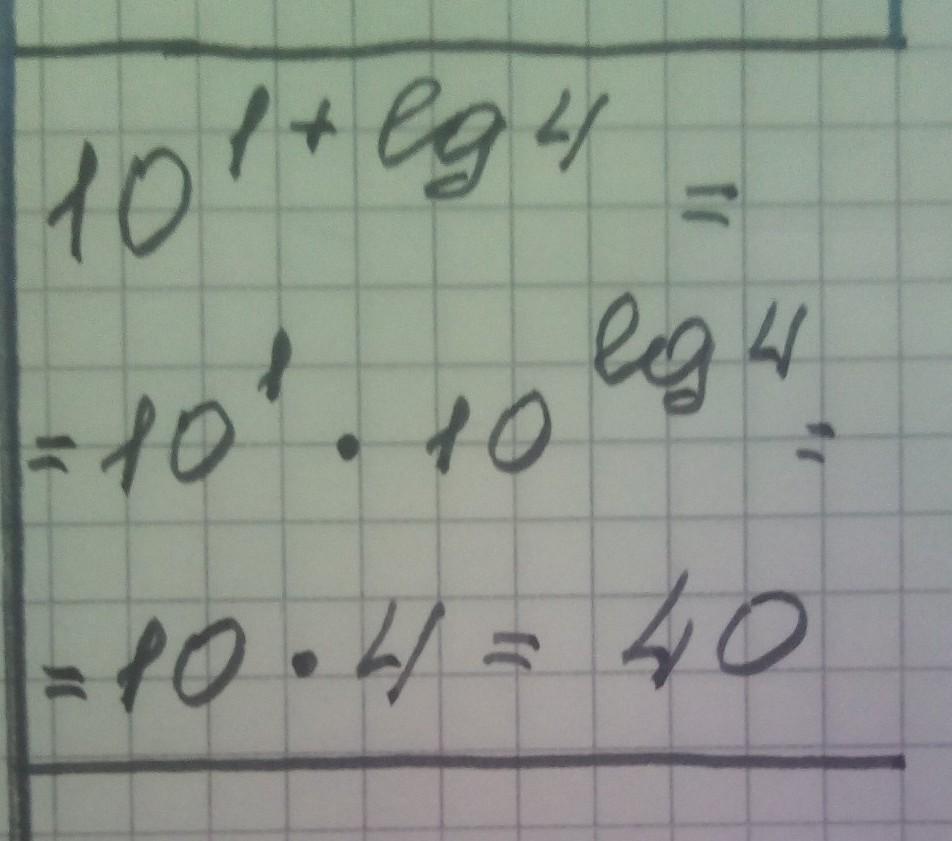 10^{1 + lg 4} =
= 10^1 · 10^{lg 4} =
= 10 · 4 = 40